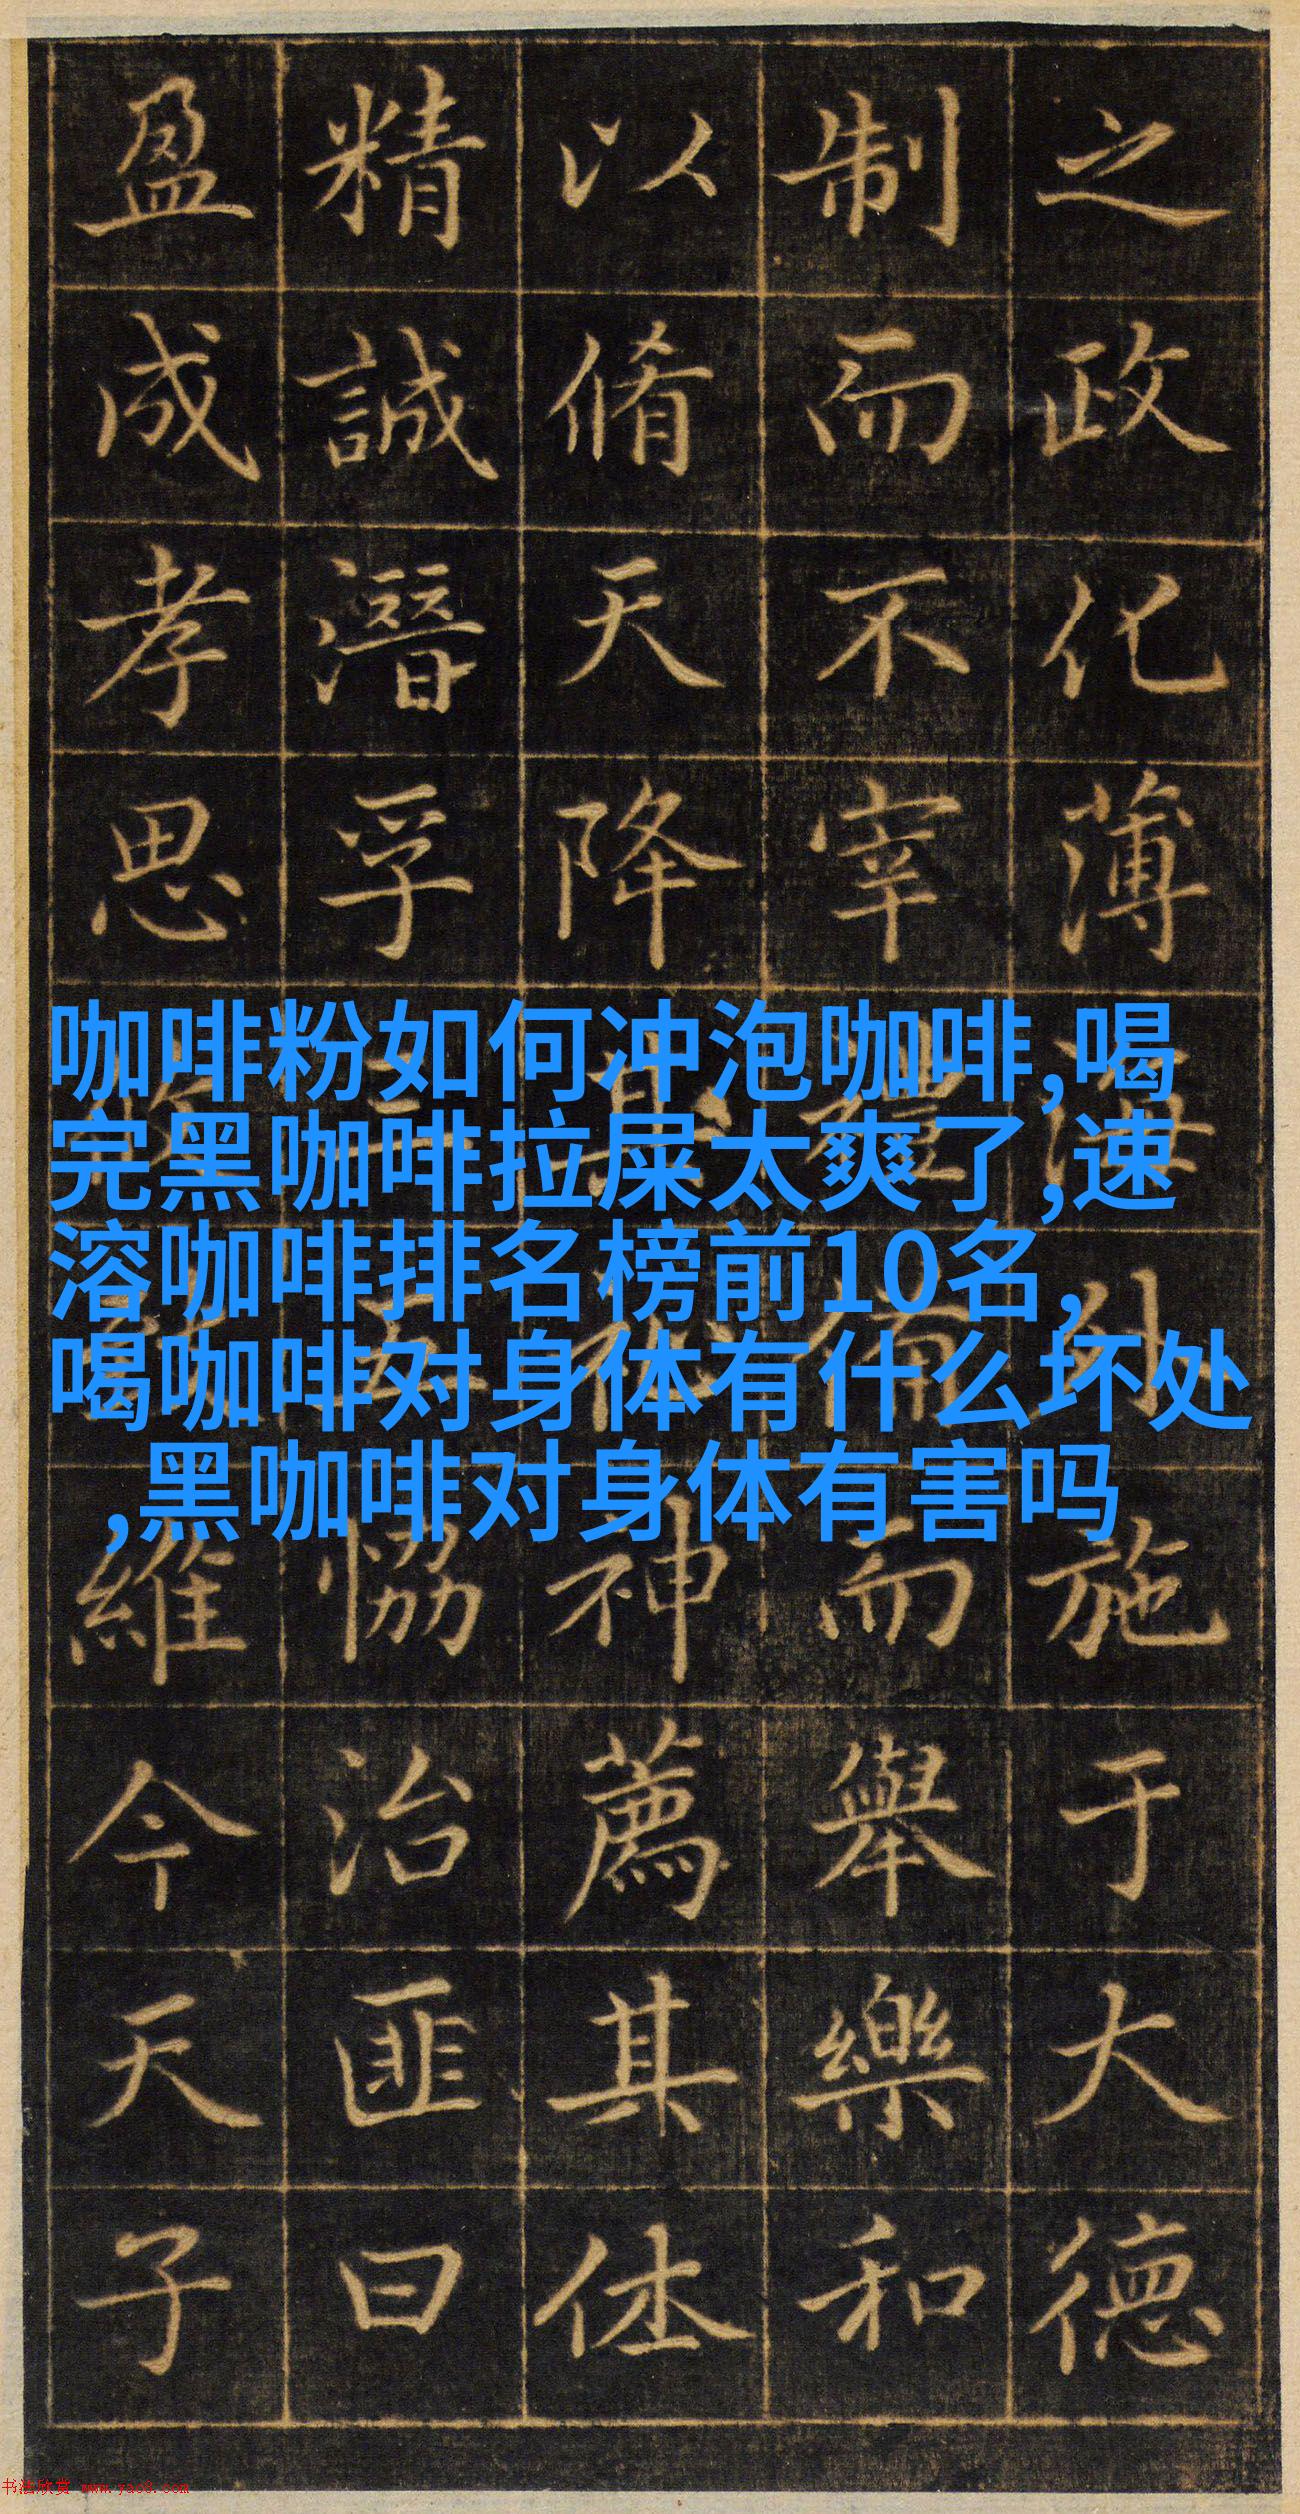 之政化薄海外施于大德
制而不宰禮備而舉樂和
以脩天降其神薦其休
精誠潛孚恊治匪曰
盈成孝思維今天子
咖啡粉如何冲泡咖啡,喝
完黑咖啡拉屎太爽了,速
溶咖啡排名榜前10名,
喝咖啡对身体有什么坏处
,黑咖啡对身体有害吗
书法欣赏 www.yac8.com